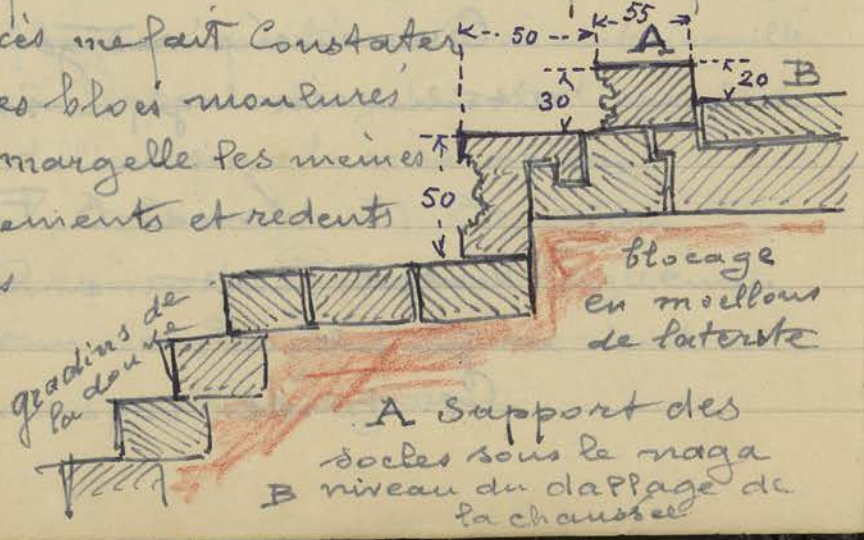 cès me fait Constater
es blocs moulurés
margelle les mêmes
ements et redents
s
50
55
A
30
20
B
50
blocage
en moellons
de laterite
gradins de
la douve
A Support des
socles sous le naga
B niveau du dallage de
la chaussée